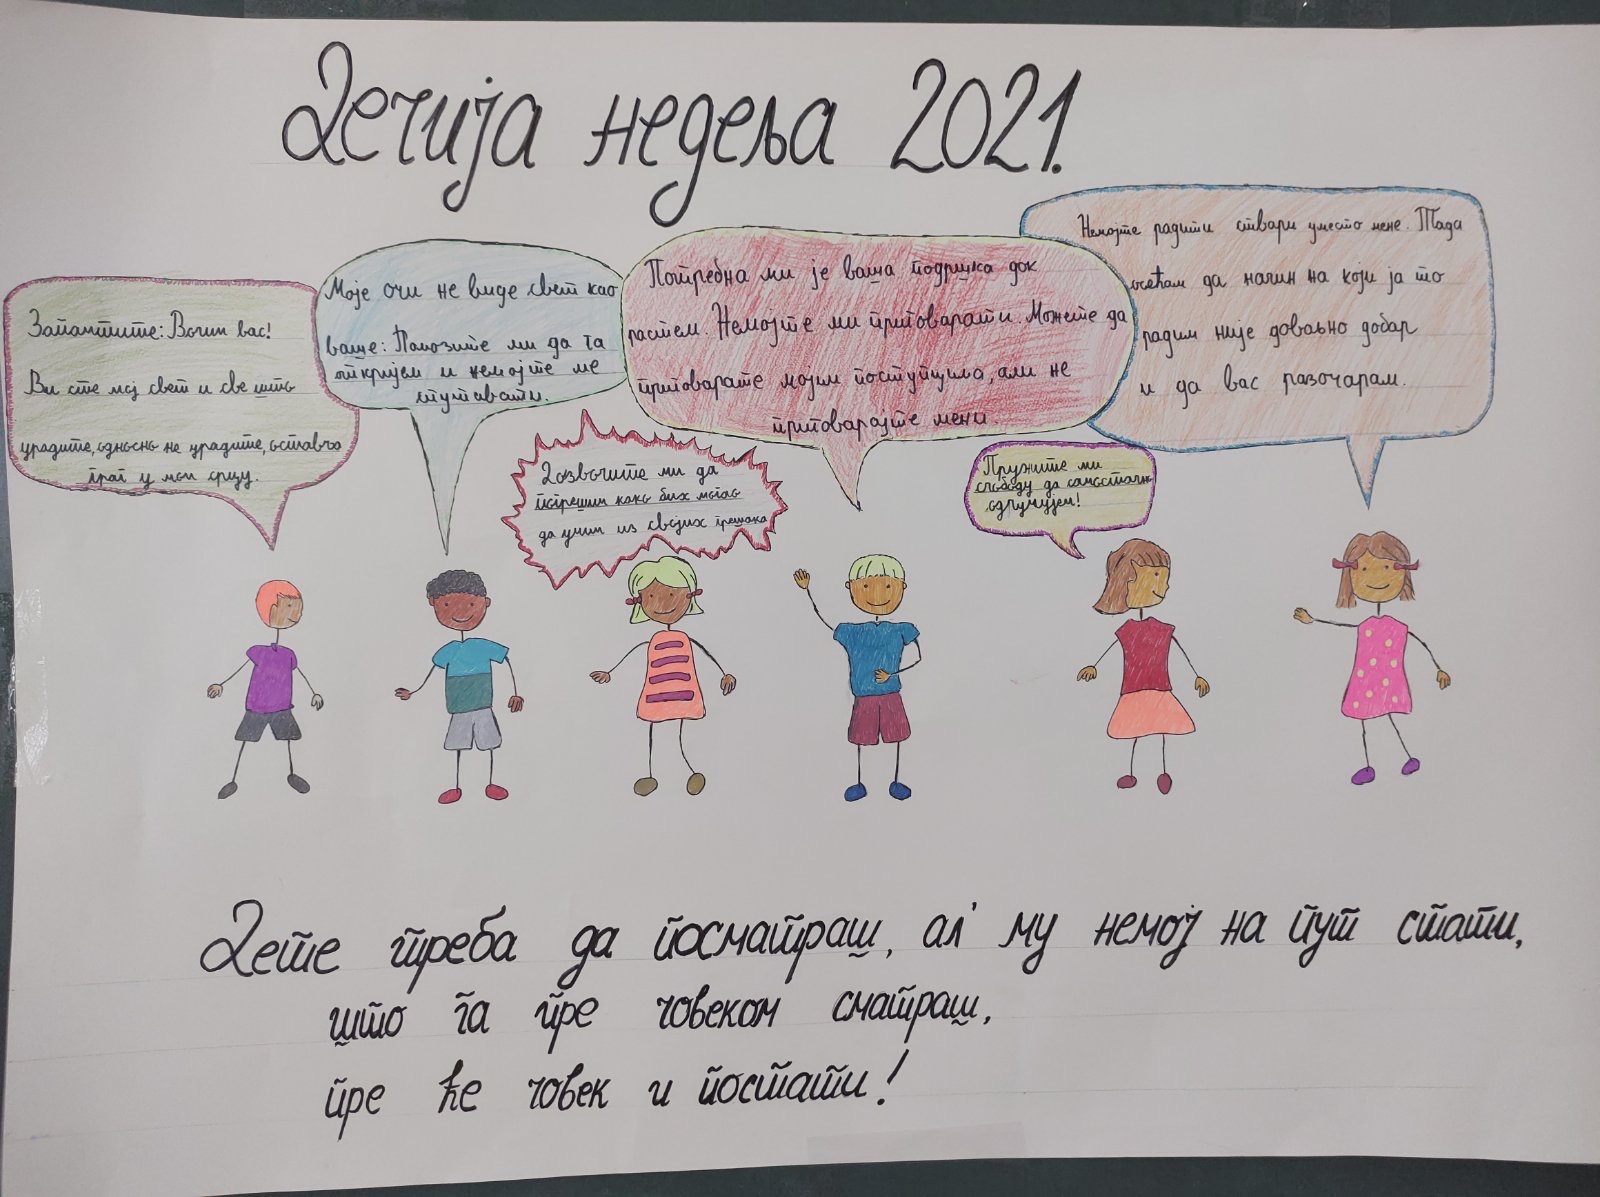 Дечија недеља 2021.
Запамтите: Волим вас!
Ви сте мој свет и све што
урадите, односно не урадите, оставља
траг у мом срцу.
Моје очи не виде свет као
ваше: Помозите ми да га
откријем и немојте ме
спутавати.
Дозволите ми да
погрешим како бих могао
да учим из својих грешака
Потребна ми је ваша подршка док
растем. Немојте ми приговарати. Можете да
приговарате мојим поступцима, али не
приговарајте мени.
Пружите ми
слободу да самостално
одлучујем!
Немојте радити ствари уместо мене. Тада
осећам да начин на који ја то
радим није довољно добар
и да вас разочарам.
Дете треба да посматраш, ал' му немој на пут стати,
што га пре човеком сматраш,
пре ће човек и постати!